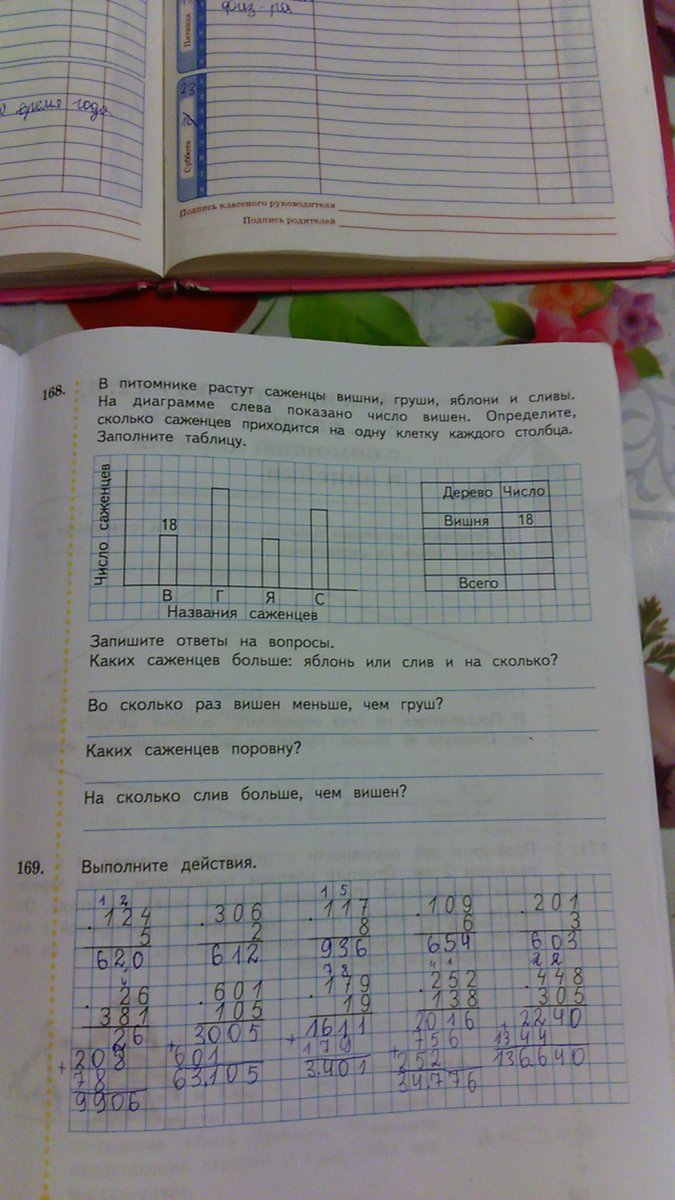 физ-ра
Пятница
23
время года
Суббота
Подпись классного руководителя
Подпись родителей
168.
В питомнике растут саженцы вишни, груши, яблони и сливы.
На диаграмме слева показано число вишен. Определите,
сколько саженцев приходится на одну клетку каждого столбца.
Заполните таблицу.
Число саженцев
18
В Г Я С
Названия саженцев
Дерево Число
Вишня 18
Всего
Запишите ответы на вопросы.
Каких саженцев больше: яблонь или слив и на сколько?
Во сколько раз вишен меньше, чем груш?
Каких саженцев поровну?
На сколько слив больше, чем вишен?
169.
Выполните действия.
1 2 1 5
.124 .306 .117 .109 .201
5 2 8 6 3
620 612 936 654 603
.26 .601 .179 .252 .448
381 105 19 138 305
26 3005 1611 2016 2240
+208 +601 +179 +756 +1344
78 63.105 3.401 252 136.640
9906 34.776